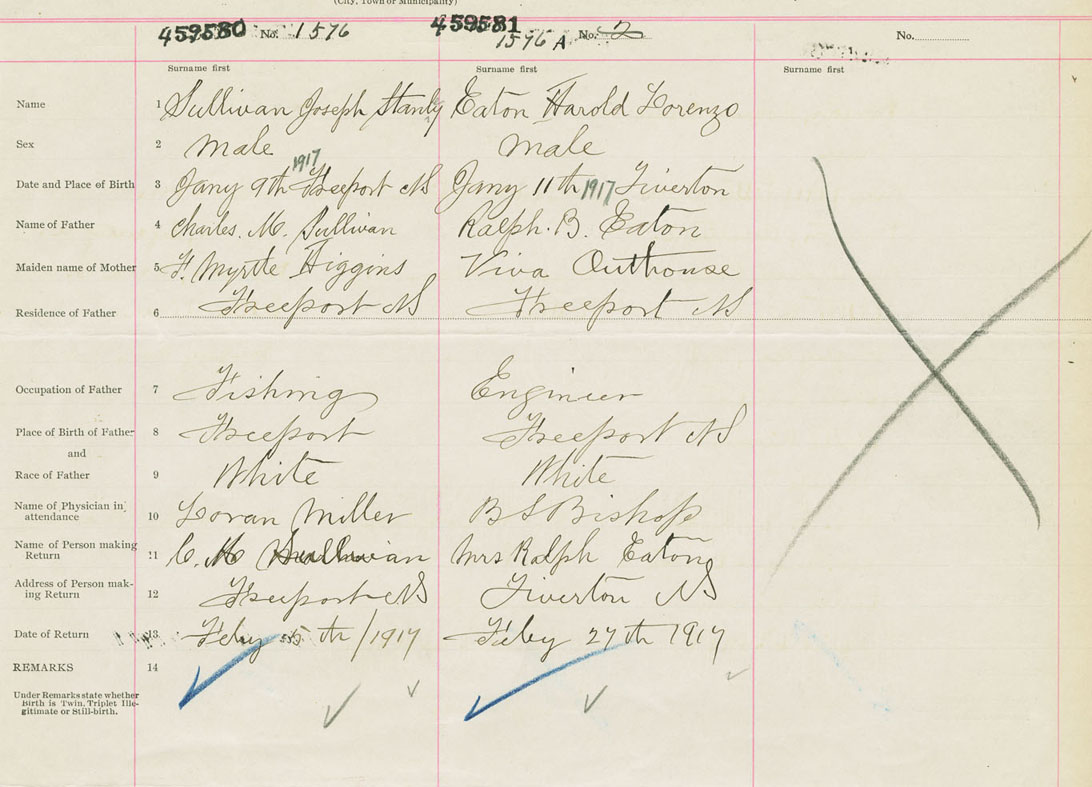 (City, Town or Municipality)
459580 No. 1576 459581 1576 A No. 2 No.
Surname first Surname first Surname first
Name 1 Sullivan Joseph Stanly Eaton Harold Lorenzo
Sex 2 Male Male
Date and Place of Birth 3 Jany 9th 1917 Freeport NS Jany 11th 1917 Tiverton
Name of Father 4 Charles. M. Sullivan Ralph. B. Eaton
Maiden name of Mother 5 F. Myrtle Higgins Viva Outhouse
Residence of Father 6 Freeport NS Freeport NS
Occupation of Father 7 Fishing Engineer
Place of Birth of Father 8 Freeport Freeport NS
and
Race of Father 9 White White
Name of Physician in attendance 10 Lovan Miller B S Bishop
Name of Person making Return 11 C. M. Sullivan Mrs Ralph Eaton
Address of Person making Return 12 Freeport NS Tiverton NS
Date of Return 13 Feby th/1917 Feby 27th 1917
REMARKS 14
Under Remarks state whether
Birth is Twin, Triplet Ille-
gitimate or Still-birth.